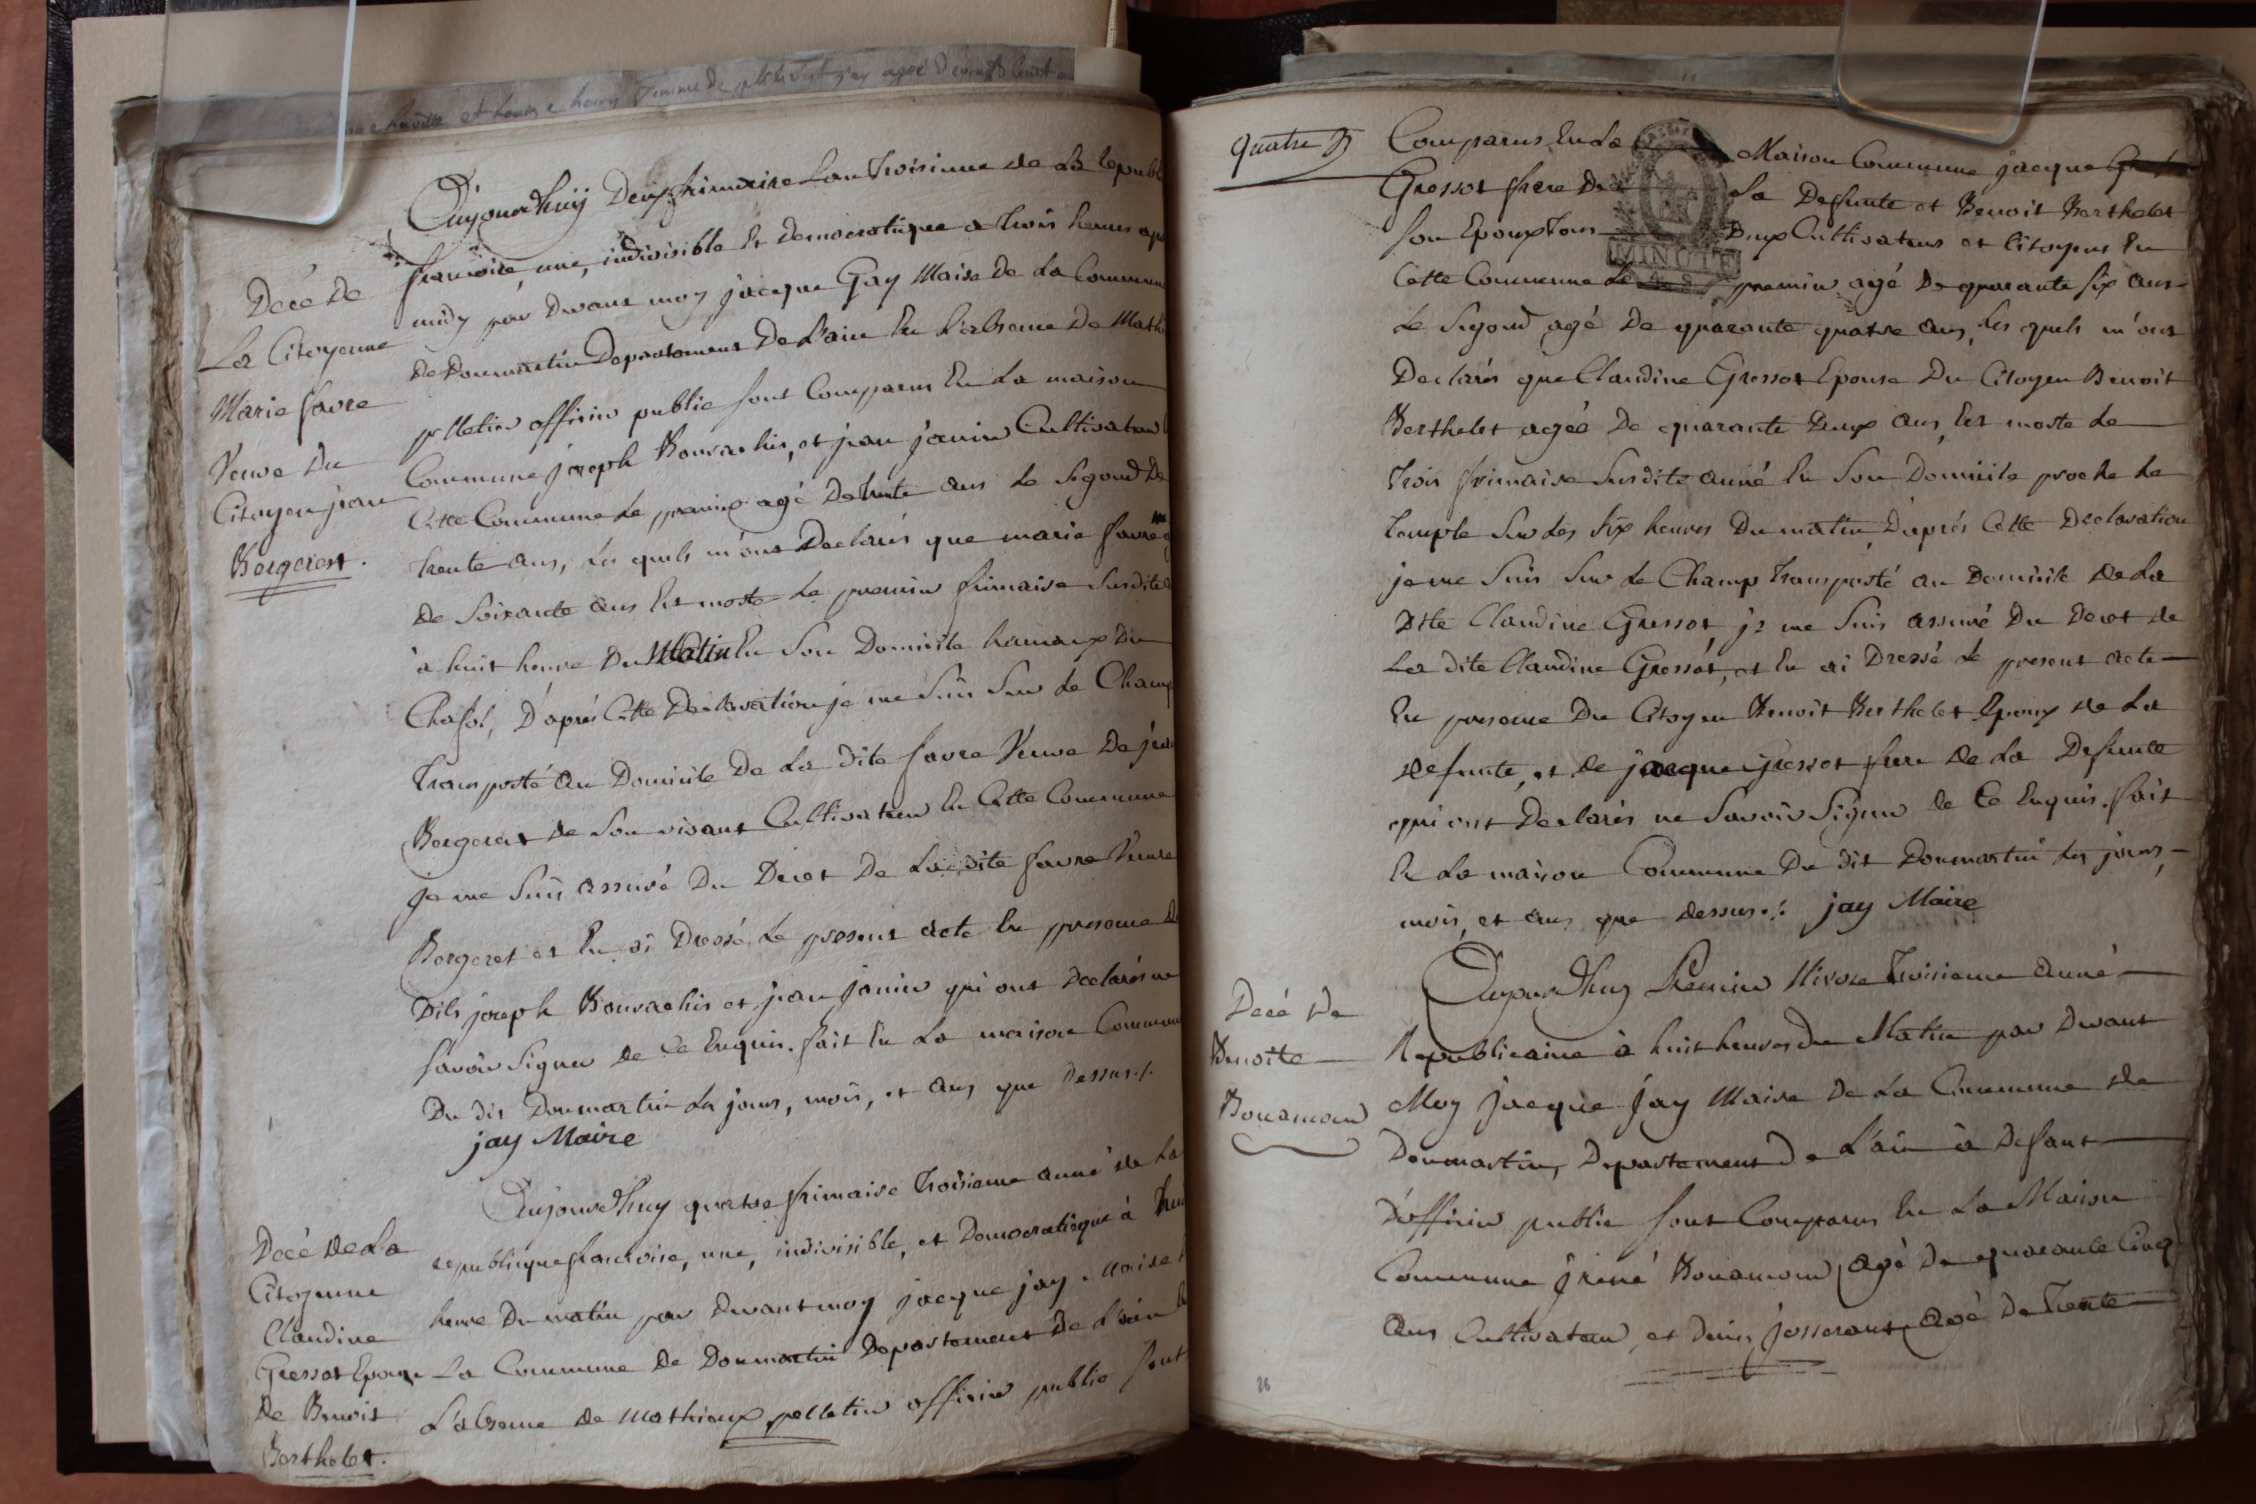 femme de agée de
Decé de
La Citoyenne
Marie favre
Veuve Du
Citoyen jean
Bergeret.
Aujourd'huy Deux frimaire L'an troisieme de La republ
francoise, une, indivisible Et Democratique a trois heures apr
midy par Devant moy jacque Gay Maire De La Commune
De Dommartin Departement De L'ain En L'absence De Math
pelletier officier public sont Comparus En La maison
Commune joseph Bourachis, et jean janin Cultivateur
Cette Commune Le premier agé De trente ans Le segond De
trente ans, Les quels m'ont Declarés que marie favre
De Soixante ans Est morte Le premier frimaire Susdite
à huit heure Du Matin En Son Domicile hameaux Du
Chafol, D'aprés Cette Declaration je me Suis Sur Le Champ
Transporté au Domicile De La dite favre Veuve De jean
Bergeret de Son vivant Cultivateur En Cette Commune
je me Suis assuré Du Decet De La dite favre Veuve
Bergeret et En ai Dressé Le present acte En presence De
Dits joseph Bourachis et jean janin qui ont Declarés ne
Savoir Signer de Ce Enquis. fait En La maison Commune
Du dit Dommartin Les jours, mois, et ans que Dessus./.
jay Maire
Decé De La
Citoyenne
Claudine
Gressot Epouse
de Benoit
Berthelet.
Aujourd'huy quatre frimaire troisieme anné de La
republique francoise, une, indivisible, et Democratique à huit
heure Du matin par Devant moy jacque jay Maire
La Commune De Dommartin Departement De L'ain
L'absence de Mathieux pelletier officier public sont
quatre
Comparus En La Maison Commune jacque
Gressot frere De La Defunte et Benoit Berthelet
Son Epoux Tous Deux Cultivateurs et Citoyens En
MINUTE
Cette Commune Le premier agé De quarante six ans
Le Segond agé De quarante quatre ans, Les quels m'ont
Declarés que Claudine Gressot Epouse Du Citoyen Benoit
Berthelet agée De quarante Deux ans Est morte Le
trois frimaire Susdite anné En Son Domicile proche Le
temple Sur Les Six heures Du matin, D'aprés Cette Declaration
je me Suis Sur Le Champ Transporté au Domicile De La
Dite Claudine Gressot, je me Suis assuré Du Decet de
La dite Claudine Gressot, et En ai Dressé Le present acte
En presence Du Citoyen Benoit Berthelet Epoux de La
defunte, et de jacque Gressot frere de La Defunte
qui ont Declarés ne Savoir Signer de Ce Enquis. fait
En La maison Commune Du dit Dommartin Les jours,
mois, et ans que dessus./. jay Maire
Decé De
Benoite
Bonamour
Aujourd'huy Premier Nivose troisieme anné
Republicaine à huit heures Du Matin par Devant
Moy jacque jay Maire De La Commune de
Dommartin, Departement De L'ain à Defaut
D'officier public sont Comparus En La Maison
Commune Bonamour, agé De quarante Cinq
ans Cultivateur, et Denis josserant agé De Trente
26